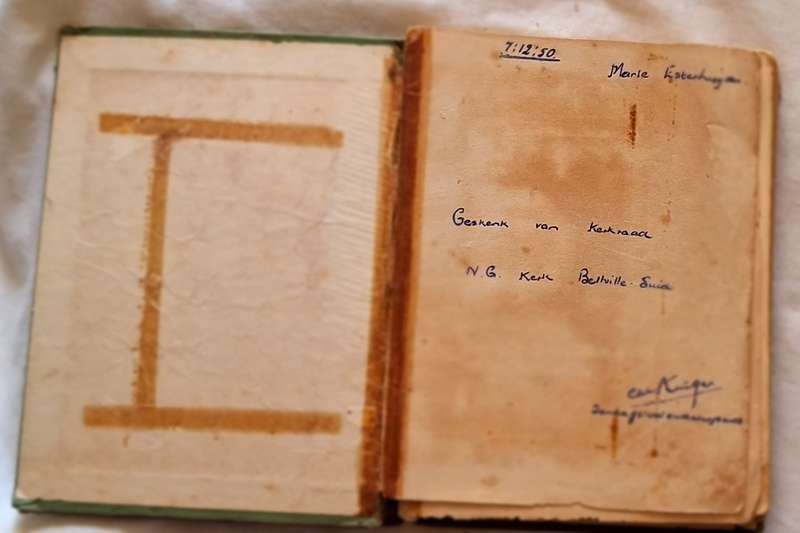 7:12:50
Marie Esterhuyse
Geskenk van Kerkraad
N.G. Kerk Bellville-Suid
Kruger